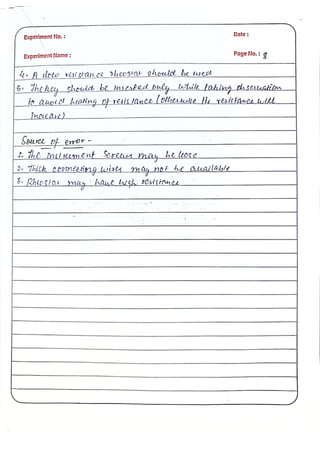 Experiment No. :
Date :
Experiment Name :
Page No. : 8
4. A low resistance rheostat should be used
5. The key should be inserted only while taking observation
to avoid heating of resistance (otherwise its resistance will
increase)
Source of error -
1. The instrument screws may be loose
2. Thick connecting wires may not be available
3. Rheostat may have high resistance